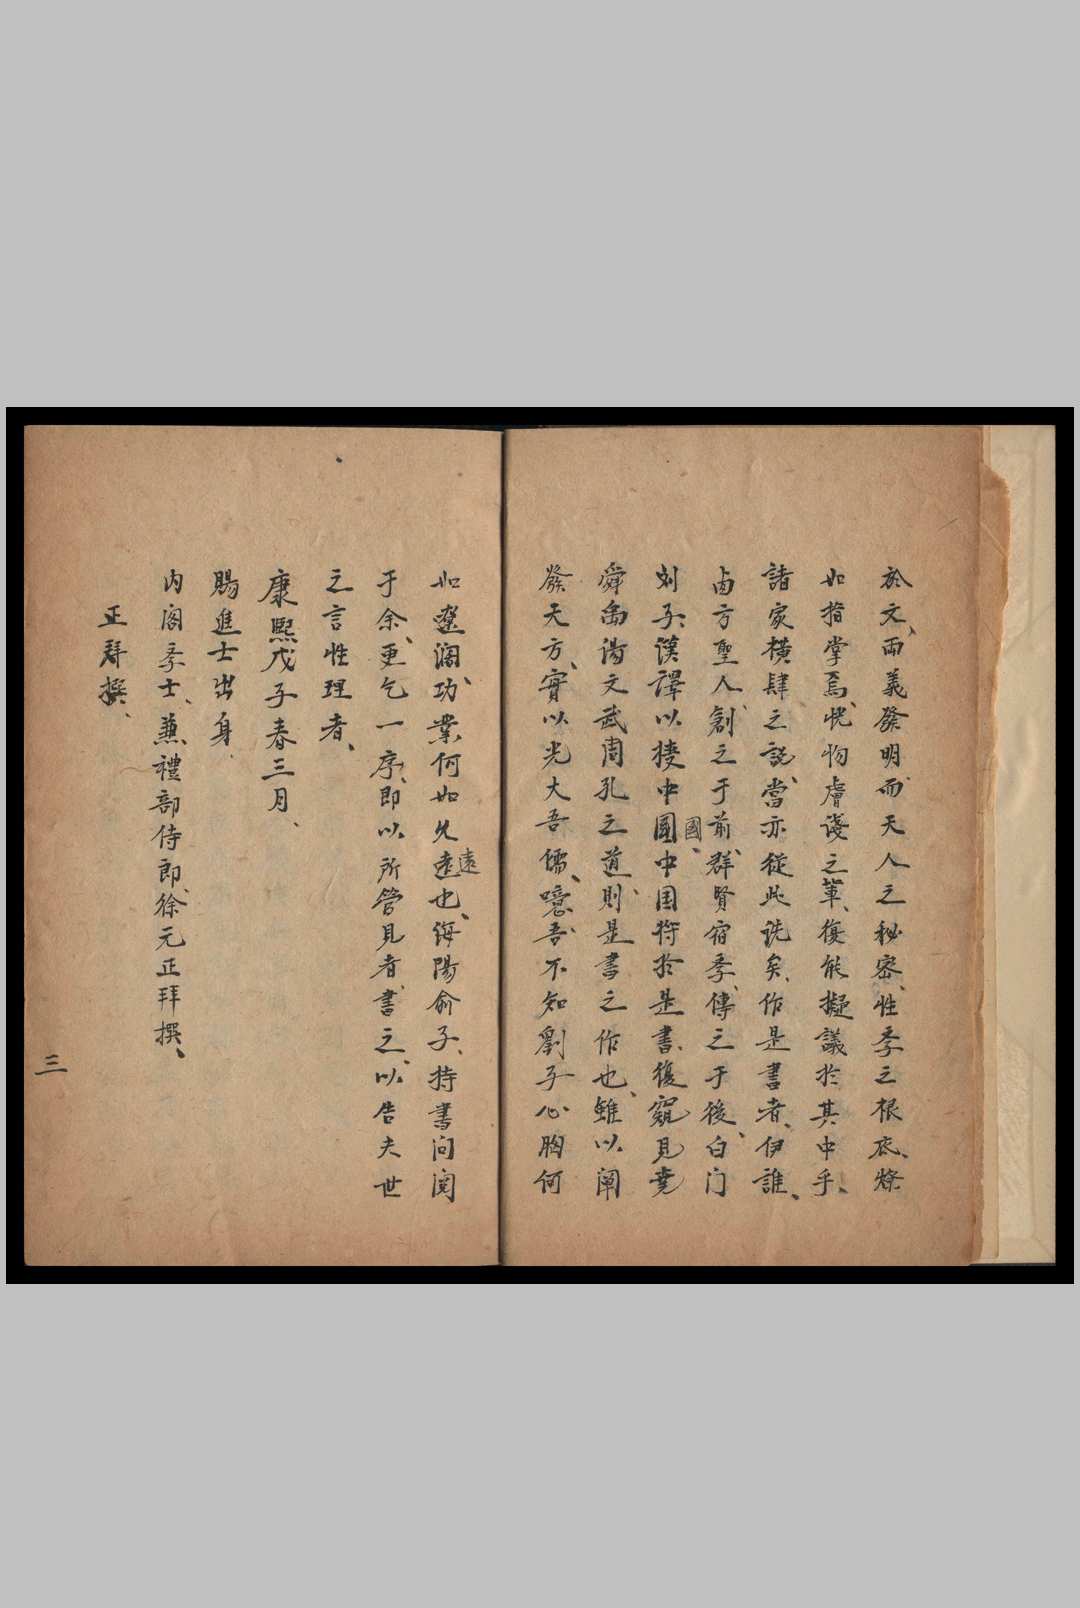 於文、兩義發明、而天人之秘密、性季之根底、燦
如指掌焉、恍物膚淺之筆、復能擬議於其中乎、
諸家橫肆之説、當亦從此詵矣、作是書者、伊誰、
卤方聖人、創之于前、群賢宿季、傳之于後、白门
國、
刘子、漢譯以捷中國中国将於是書、復窺見堯
舜禹湯文武周孔之道、則是書之作也、雖以闡
發天方、實以光大吾儒、噫、吾不知劉子心胸何
如遼濶、功業何如久遠也、海陽俞子、持書问阅
遠
于余、更乞一序、即以所管見者、書之、以告夫世
之言性理者、
康熙戊子春三月、
賜進士出身
内阁季士、兼禮部侍郎、徐元正拜撰、
正拜撰、
三